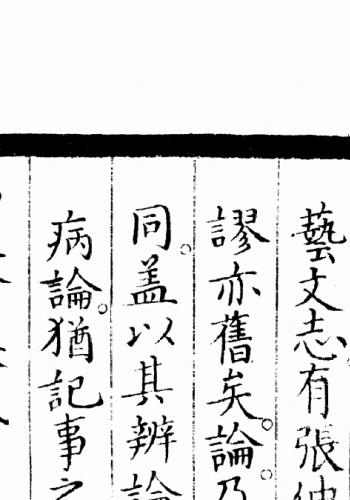 藝文志有張仲
謬亦舊矣。論。乃
同。盖以其辨論
病論。猶記事之